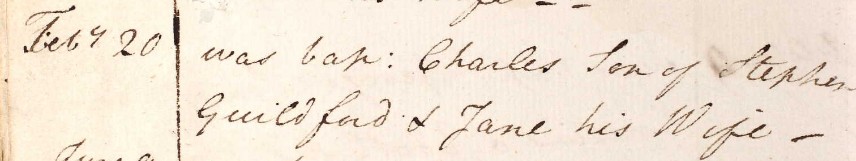 his Wife - -
Feby 20 was bap: Charles Son of Stephen
Guildford & Jane his Wife -